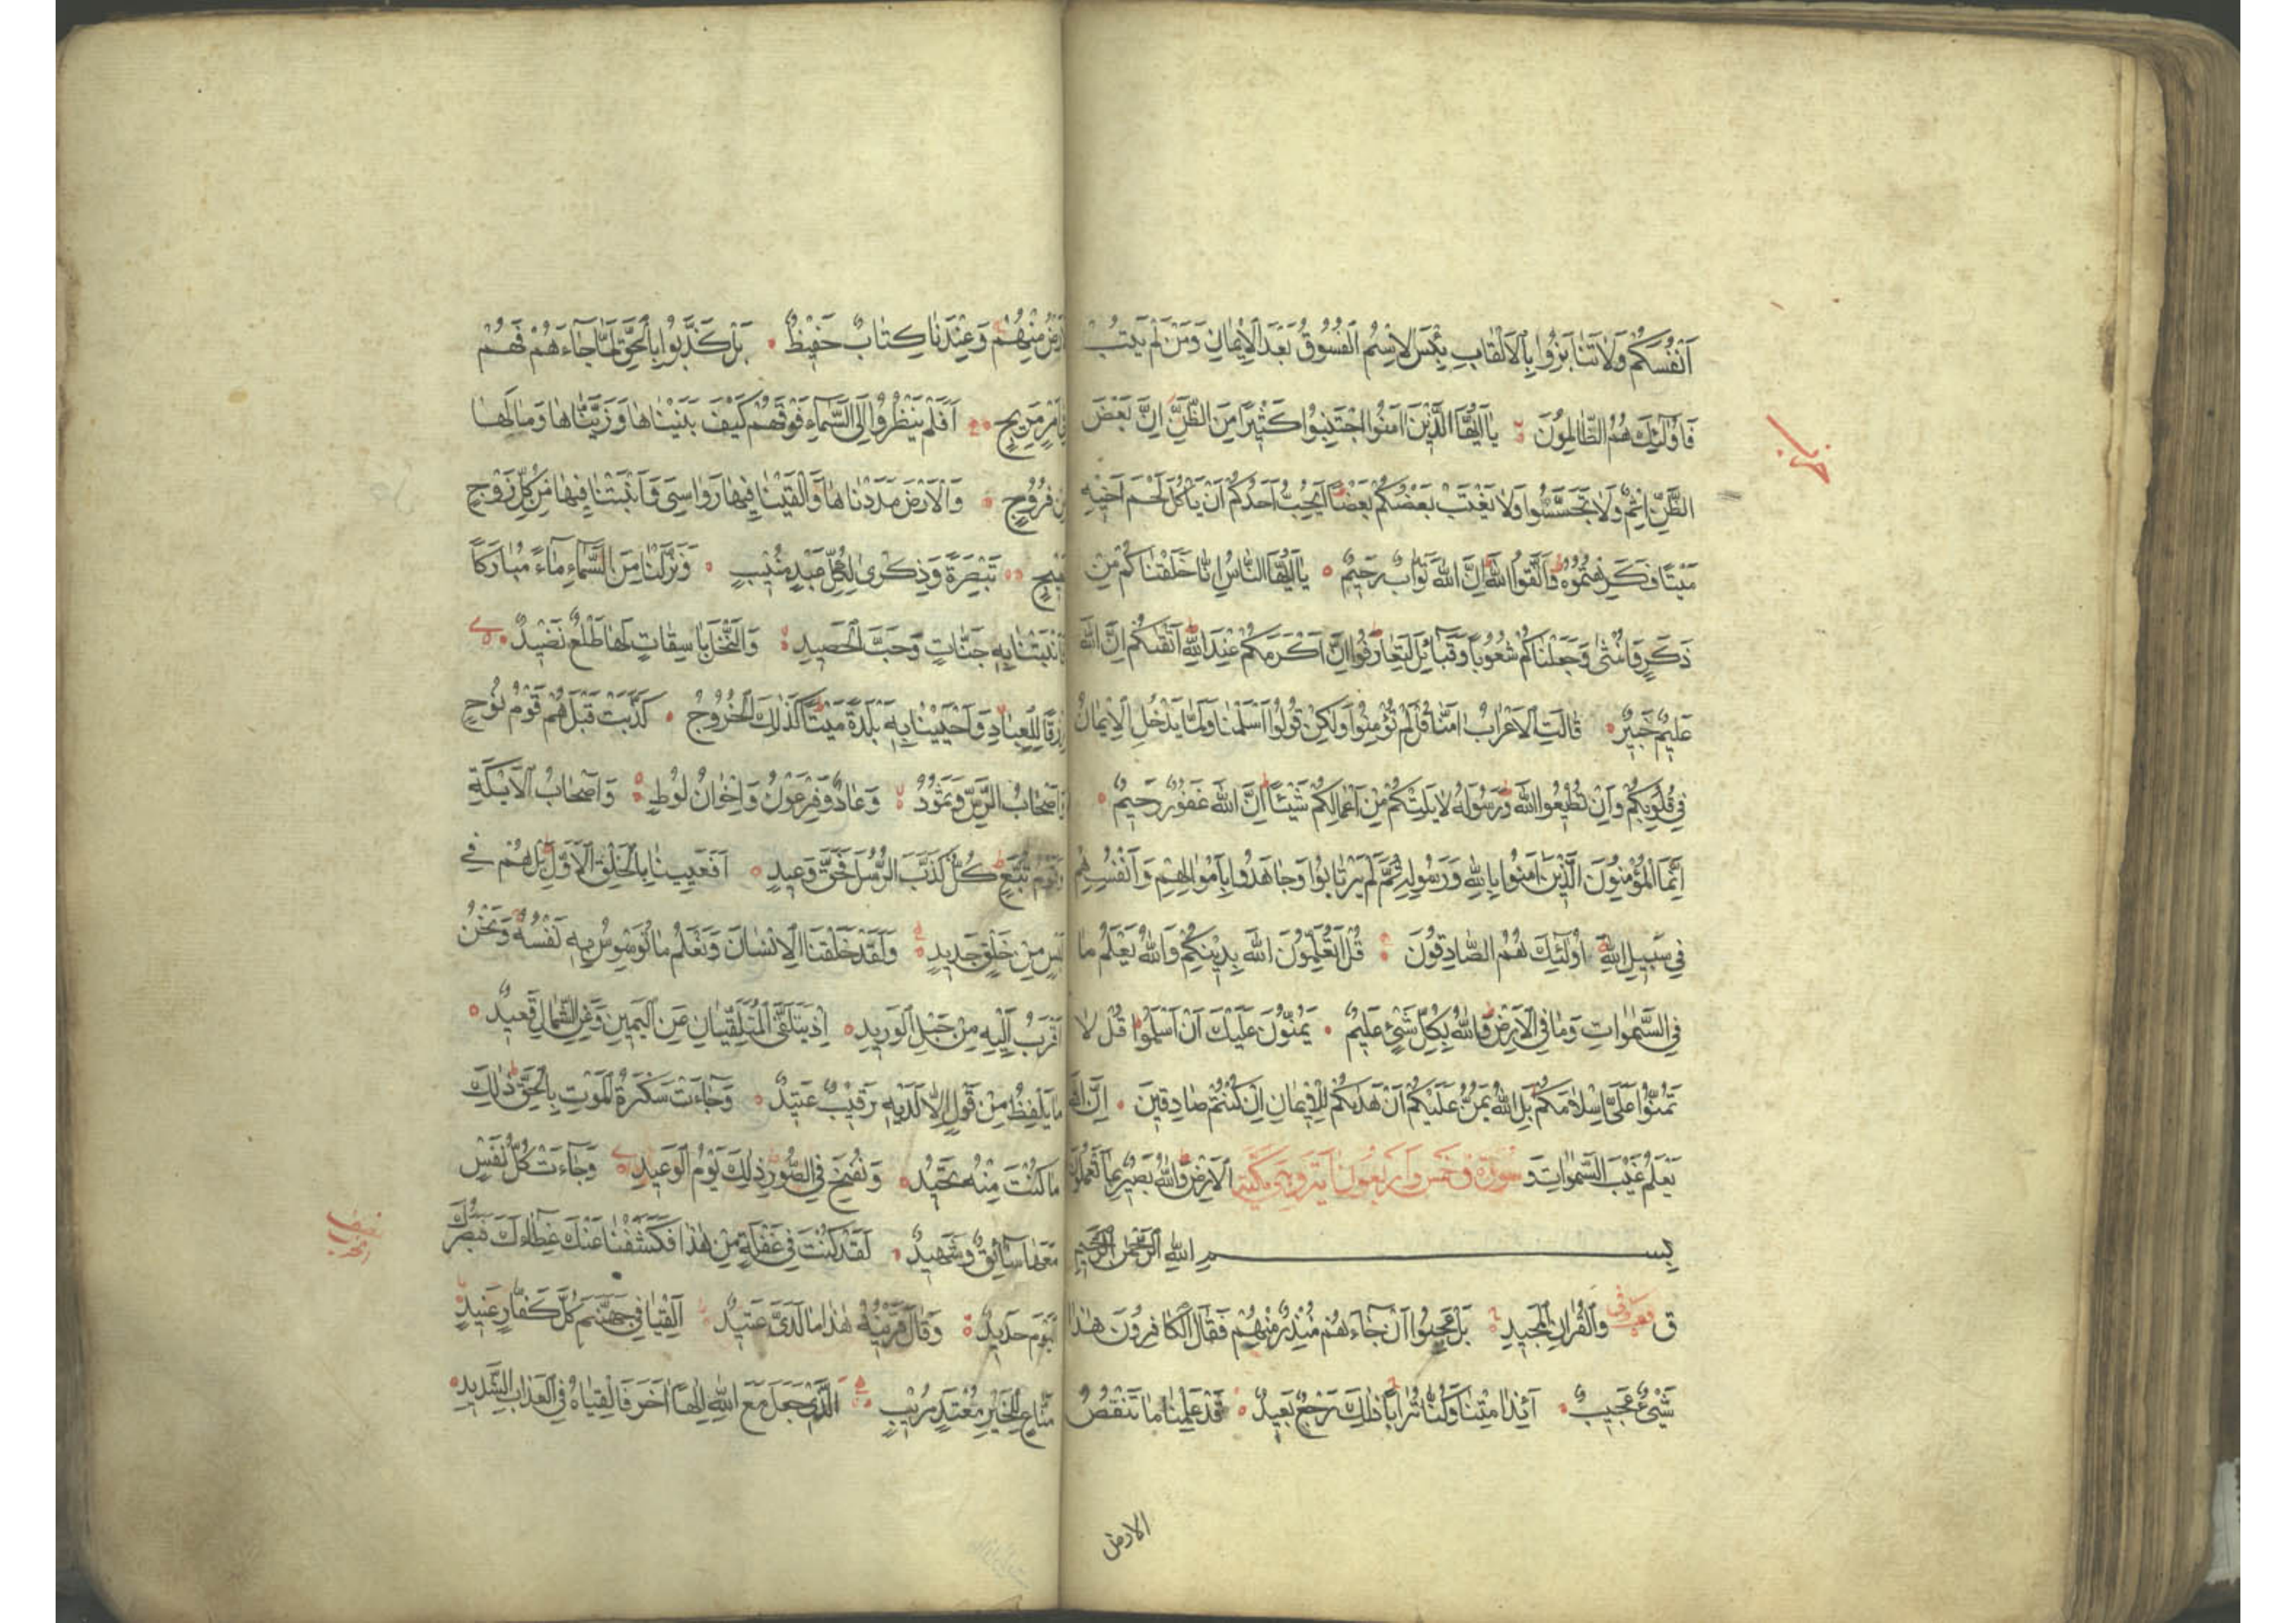 اَنْفُسَكُمْ وَلَا تَنَابَزُوا بِالْاَلْقَابِ بِئْسَ الِاسْمُ الْفُسُوقُ بَعْدَ الْاِيْمَانِ وَمَنْ لَمْ يَتُبْ
فَاُولٰئِكَ هُمُ الظَّالِمُونَ يَا اَيُّهَا الَّذِيْنَ اٰمَنُوا اجْتَنِبُوا كَثِيْرًا مِنَ الظَّنِّ اِنَّ بَعْضَ
الظَّنِّ اِثْمٌ وَلَا تَجَسَّسُوا وَلَا يَغْتَبْ بَعْضُكُمْ بَعْضًا اَيُحِبُّ اَحَدُكُمْ اَنْ يَاْكُلَ لَحْمَ اَخِيْهِ
مَيْتًا فَكَرِهْتُمُوهُ وَاتَّقُوا اللّٰهَ اِنَّ اللّٰهَ تَوَّابٌ رَحِيْمٌ يَا اَيُّهَا النَّاسُ اِنَّا خَلَقْنَاكُمْ مِنْ
ذَكَرٍ وَاُنْثٰى وَجَعَلْنَاكُمْ شُعُوبًا وَقَبَائِلَ لِتَعَارَفُوا اِنَّ اَكْرَمَكُمْ عِنْدَ اللّٰهِ اَتْقٰىكُمْ اِنَّ اللّٰهَ
عَلِيْمٌ خَبِيْرٌ قَالَتِ الْاَعْرَابُ اٰمَنَّا قُلْ لَمْ تُؤْمِنُوا وَلٰكِنْ قُولُوا اَسْلَمْنَا وَلَمَّا يَدْخُلِ الْاِيْمَانُ
فِي قُلُوبِكُمْ وَاِنْ تُطِيْعُوا اللّٰهَ وَرَسُولَهُ لَا يَلِتْكُمْ مِنْ اَعْمَالِكُمْ شَيْئًا اِنَّ اللّٰهَ غَفُورٌ رَحِيْمٌ
اِنَّمَا الْمُؤْمِنُونَ الَّذِيْنَ اٰمَنُوا بِاللّٰهِ وَرَسُولِهِ ثُمَّ لَمْ يَرْتَابُوا وَجَاهَدُوا بِاَمْوَالِهِمْ وَاَنْفُسِهِمْ
فِي سَبِيلِ اللّٰهِ اُولٰئِكَ هُمُ الصَّادِقُونَ قُلْ اَتُعَلِّمُونَ اللّٰهَ بِدِيْنِكُمْ وَاللّٰهُ يَعْلَمُ مَا
فِي السَّمٰوَاتِ وَمَا فِي الْاَرْضِ وَاللّٰهُ بِكُلِّ شَيْءٍ عَلِيْمٌ يَمُنُّونَ عَلَيْكَ اَنْ اَسْلَمُوا قُلْ لَا
تَمُنُّوا عَلَيَّ اِسْلَامَكُمْ بَلِ اللّٰهُ يَمُنُّ عَلَيْكُمْ اَنْ هَدٰىكُمْ لِلْاِيْمَانِ اِنْ كُنْتُمْ صَادِقِيْنَ اِنَّ اللّٰهَ
يَعْلَمُ غَيْبَ السَّمٰوَاتِ وَ سُورَةُ ق خمس واربعون اٰية وهي مكية الْاَرْضِ وَاللّٰهُ بَصِيْرٌ بِمَا تَعْمَلُونَ
بِسْمِ اللّٰهِ الرَّحْمٰنِ الرَّحِيْمِ
ق وَالْقُرْاٰنِ الْمَجِيْدِ بَلْ عَجِبُوا اَنْ جَاءَهُمْ مُنْذِرٌ مِنْهُمْ فَقَالَ الْكَافِرُونَ هٰذَا
شَيْءٌ عَجِيْبٌ اَئِذَا مِتْنَا وَكُنَّا تُرَابًا ذٰلِكَ رَجْعٌ بَعِيْدٌ قَدْ عَلِمْنَا مَا تَنْقُصُ
الارض
مِنْهُمْ وَعِنْدَنَا كِتَابٌ حَفِيْظٌ بَلْ كَذَّبُوا بِالْحَقِّ لَمَّا جَاءَهُمْ فَهُمْ
فِي اَمْرٍ مَرِيْجٍ اَفَلَمْ يَنْظُرُوا اِلَى السَّمَاءِ فَوْقَهُمْ كَيْفَ بَنَيْنَاهَا وَزَيَّنَّاهَا وَمَا لَهَا
مِنْ فُرُوجٍ وَالْاَرْضَ مَدَدْنَاهَا وَاَلْقَيْنَا فِيْهَا رَوَاسِيَ وَاَنْبَتْنَا فِيْهَا مِنْ كُلِّ زَوْجٍ
بَهِيْجٍ تَبْصِرَةً وَذِكْرٰى لِكُلِّ عَبْدٍ مُنِيْبٍ وَنَزَّلْنَا مِنَ السَّمَاءِ مَاءً مُبَارَكًا
فَاَنْبَتْنَا بِهِ جَنَّاتٍ وَحَبَّ الْحَصِيْدِ وَالنَّخْلَ بَاسِقَاتٍ لَهَا طَلْعٌ نَضِيْدٌ
رِزْقًا لِلْعِبَادِ وَاَحْيَيْنَا بِهِ بَلْدَةً مَيْتًا كَذٰلِكَ الْخُرُوجُ كَذَّبَتْ قَبْلَهُمْ قَوْمُ نُوحٍ
وَاَصْحَابُ الرَّسِّ وَثَمُودُ وَعَادٌ وَفِرْعَوْنُ وَاِخْوَانُ لُوطٍ وَاَصْحَابُ الْاَيْكَةِ
وَقَوْمُ تُبَّعٍ كُلٌّ كَذَّبَ الرُّسُلَ فَحَقَّ وَعِيْدِ اَفَعَيِيْنَا بِالْخَلْقِ الْاَوَّلِ بَلْ هُمْ فِي
لَبْسٍ مِنْ خَلْقٍ جَدِيْدٍ وَلَقَدْ خَلَقْنَا الْاِنْسَانَ وَنَعْلَمُ مَا تُوَسْوِسُ بِهِ نَفْسُهُ وَنَحْنُ
اَقْرَبُ اِلَيْهِ مِنْ حَبْلِ الْوَرِيْدِ اِذْ يَتَلَقَّى الْمُتَلَقِّيَانِ عَنِ الْيَمِيْنِ وَعَنِ الشِّمَالِ قَعِيْدٌ
مَا يَلْفِظُ مِنْ قَوْلٍ اِلَّا لَدَيْهِ رَقِيْبٌ عَتِيْدٌ وَجَاءَتْ سَكْرَةُ الْمَوْتِ بِالْحَقِّ ذٰلِكَ
مَا كُنْتَ مِنْهُ تَحِيْدُ وَنُفِخَ فِي الصُّورِ ذٰلِكَ يَوْمُ الْوَعِيْدِ وَجَاءَتْ كُلُّ نَفْسٍ
مَعَهَا سَائِقٌ وَشَهِيْدٌ لَقَدْ كُنْتَ فِي غَفْلَةٍ مِنْ هٰذَا فَكَشَفْنَا عَنْكَ غِطَاءَكَ فَبَصَرُكَ
الْيَوْمَ حَدِيْدٌ وَقَالَ قَرِيْنُهُ هٰذَا مَا لَدَيَّ عَتِيْدٌ اَلْقِيَا فِي جَهَنَّمَ كُلَّ كَفَّارٍ عَنِيْدٍ
مَنَّاعٍ لِلْخَيْرِ مُعْتَدٍ مُرِيْبٍ الَّذِي جَعَلَ مَعَ اللّٰهِ اِلٰهًا اٰخَرَ فَاَلْقِيَاهُ فِي الْعَذَابِ الشَّدِيْدِ